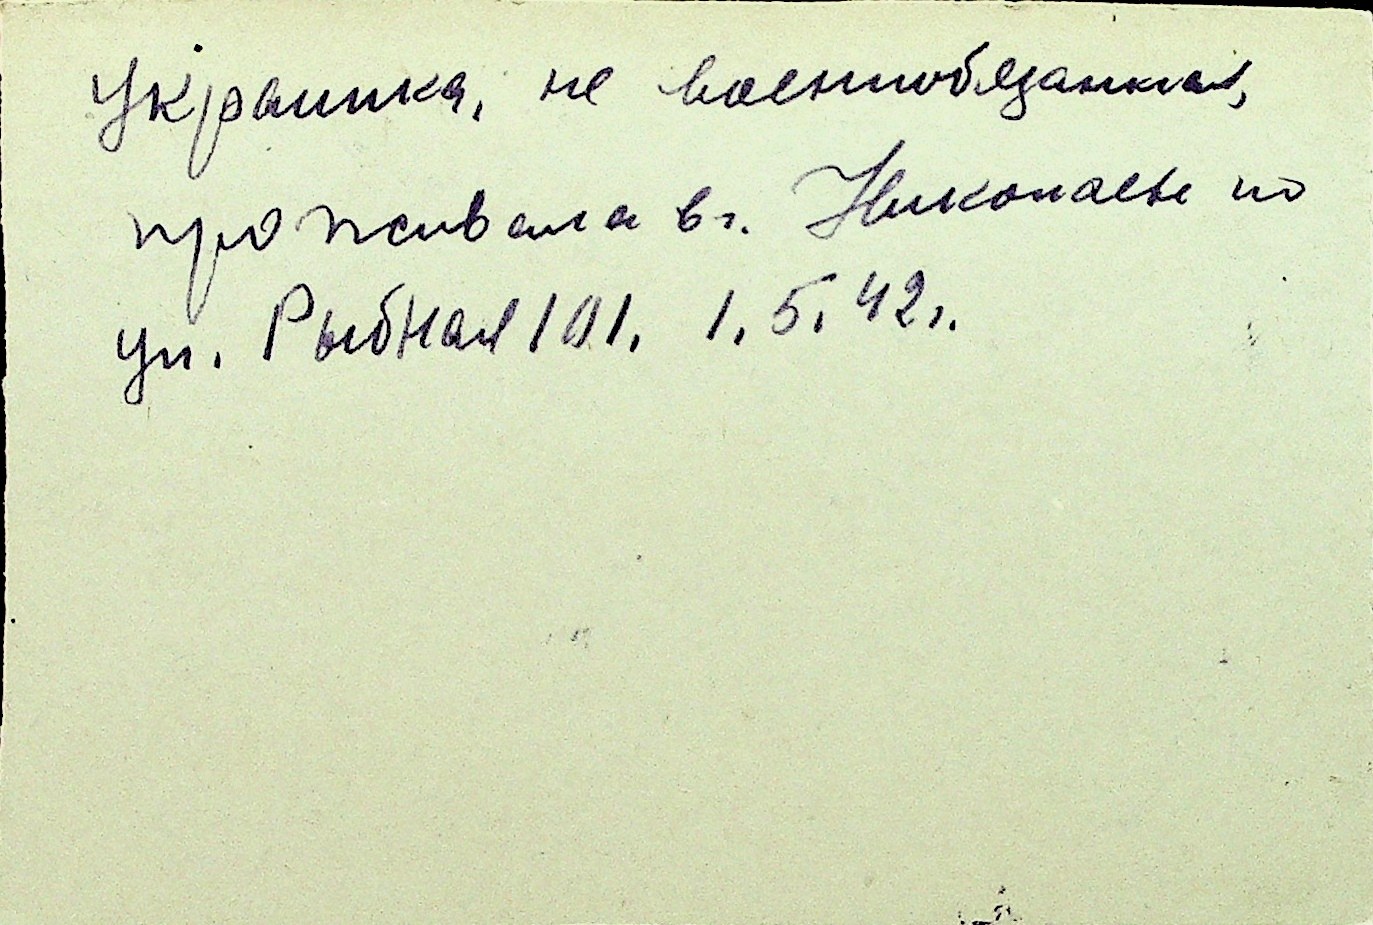 Украинка, не военнообязанная,
проживала в г. Николаеве по
ул. Рыбная 101. 1.5.42г.